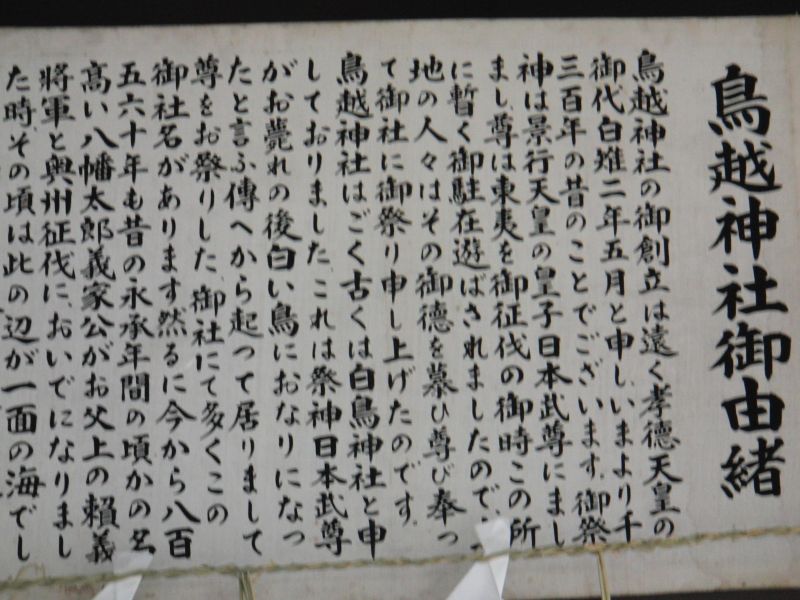 鳥越神社御由緒
鳥越神社の御創立は遠く孝德天皇の
御代白雉二年五月と申しいまより千
三百年の昔のことでございます、御祭
神は景行天皇の皇子日本武尊にまし
まし、尊は東夷を御征伐の御時この所
に暫く御駐在遊ばされましたので、
地の人々はその御德を慕ひ尊び奉っ
て御社に御祭り申し上げたのです、
鳥越神社はごく古くは白鳥神社と申
しておりました、これは祭神日本武尊
がお薨れの後白い鳥におなりになっ
たと言ふ傳へから起つて居りまして
尊をお祭りした、御社にて多くこの
御社名があります然るに今から八百
五六十年も昔の永承年間の頃かの名
高い八幡太郎義家公がお父上の賴義
將軍と奥州征伐に、おいでになりまし
た時、その頃は此の辺が一面の海でし